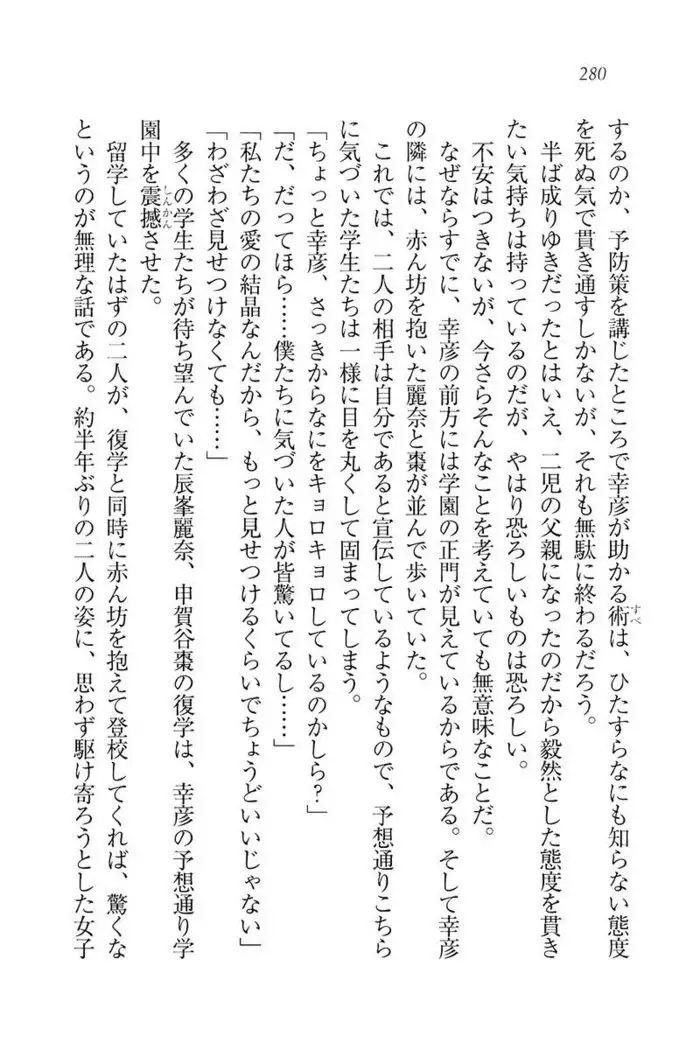 280
するのか、予防策を講じたところで幸彦が助かる術は、ひたすらなにも知らない態度
すべ
を死ぬ気で貫き通すしかないが、それも無駄に終わるだろう。
半ば成りゆきだったとはいえ、二児の父親になったのだから毅然とした態度を貫き
たい気持ちは持っているのだが、やはり恐ろしいものは恐ろしい。
不安はつきないが、今さらそんなことを考えていても無意味なことだ。
なぜならすでに、幸彦の前方には学園の正門が見えているからである。そして幸彦
の隣には、赤ん坊を抱いた麗奈と棗が並んで歩いていた。
これでは、二人の相手は自分であると宣伝しているようなもので、予想通りこちら
に気づいた学生たちは一様に目を丸くして固まってしまう。
「ちょっと幸彦、さっきからなにをキョロキョロしているのかしら?」
「だ、だってほら……僕たちに気づいた人が皆驚いてるし……」
「私たちの愛の結晶なんだから、もっと見せつけるくらいでちょうどいいじゃない」
「わざわざ見せつけなくても……」
多くの学生たちが待ち望んでいた辰峯麗奈、申賀谷棗の復学は、幸彦の予想通り学
園中を震撼させた。
しんかん
留学していたはずの二人が、復学と同時に赤ん坊を抱えて登校してくれば、驚くな
というのが無理な話である。約半年ぶりの二人の姿に、思わず駆け寄ろうとした女子